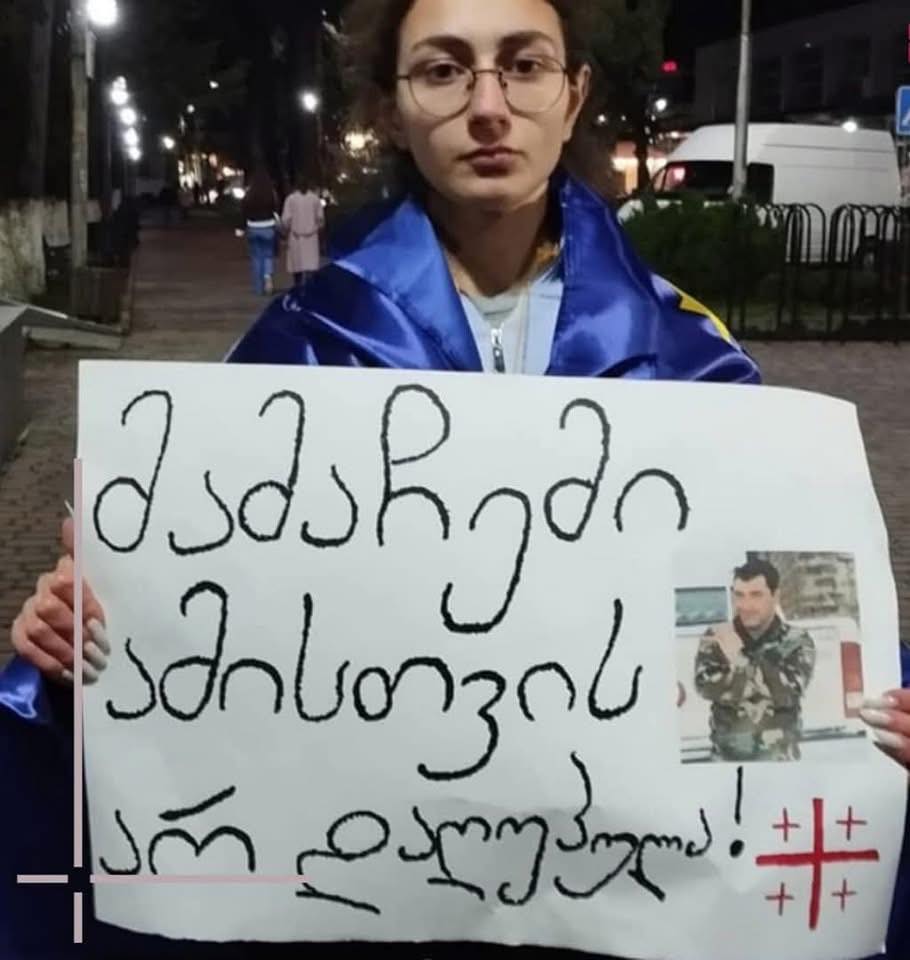 მამაჩემი
ამისთვის
არ დაღუპულა!